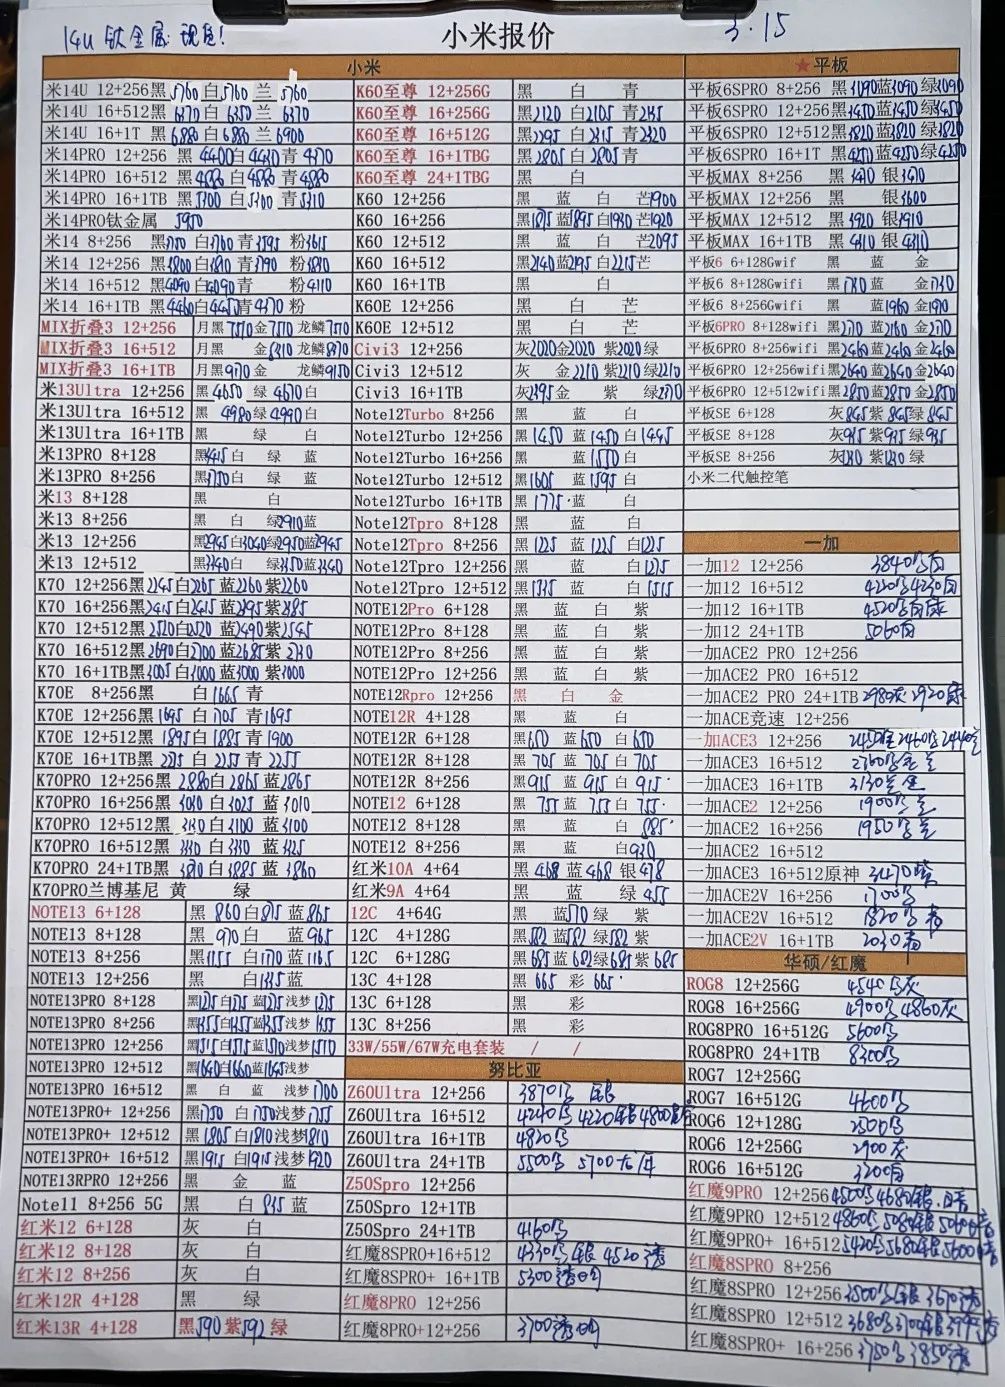 14U 钛金属 现货!
小米报价
3.15
小米
米14U 12+256黑 5760 白 5760 兰 5760
米14U 16+512黑 6370 白 6350 兰 6370
米14U 16+1T 黑 6880 白 6880 兰 6900
米14PRO 12+256 黑 4400 白 4430 青 4370
米14PRO 16+512 黑 4880 白 4880 青 4880
米14PRO 16+1TB 黑 5300 白 5300 青 5310
米14PRO钛金属 5950
米14 8+256 黑 白3760 青 粉3615
米14 12+256 黑3800 白3810 青3790 粉
米14 16+512 黑4090 白4090 青 粉4110
米14 16+1TB 黑4460 白4450 青4370 粉
MIX折叠3 12+256 月黑 7510 金 7510 龙鳞 7510
MIX折叠3 16+512 月黑 金 龙鳞
MIX折叠3 16+1TB 月黑 9170 金 龙鳞 9150
米13Ultra 12+256 黑 4650 绿 4670 白
米13Ultra 16+512 黑 4980 绿 4990 白
米13Ultra 16+1TB 黑 绿 白
米13PRO 8+128 黑 白 绿 蓝
米13PRO 8+256 黑3750 白 绿 蓝
米13 8+128 黑 白
米13 8+256 黑 白 绿2910 蓝
米13 12+256 黑2945 白3040 绿2950 蓝2945
米13 12+512 黑3340 白 绿3350 蓝3340
K70 12+256黑 2245 白 2265 蓝 2260 紫 2260
K70 16+256黑 2415 白 2415 蓝 2395 紫 2385
K70 12+512黑 2520 白 2520 蓝 2490 紫 2545
K70 16+512黑 2690 白 2700 蓝 2685 紫 2730
K70 16+1TB黑 3005 白 3000 蓝 3000 紫 3000
K70E 8+256黑 白 1665 青
K70E 12+256黑 1695 白 1705 青 1695
K70E 12+512黑 1895 白 1885 青 1900
K70E 16+1TB黑 2275 白 2255 青 2255
K70PRO 12+256黑 2880 白 2865 蓝 2865
K70PRO 16+256黑 3030 白 3025 蓝 3010
K70PRO 12+512黑 3130 白 3100 蓝 3100
K70PRO 16+512黑 3330 白 3330 蓝 3325
K70PRO 24+1TB黑 3870 白 3885 蓝 3860
K70PRO兰博基尼 黄 绿
NOTE13 6+128 黑 860 白 875 蓝 865
NOTE13 8+128 黑 970 白 蓝 965
NOTE13 8+256 黑 1155 白 1170 蓝 1165
NOTE13 12+256 黑 白 1335 蓝
NOTE13PRO 8+128 黑1275 白1275 蓝1275 浅梦 1275
NOTE13PRO 8+256 黑1355 白1355 蓝1355 浅梦 1355
NOTE13PRO 12+256 黑1515 白1515 蓝1510 浅梦 1510
NOTE13PRO 12+512 黑1640 白1660 蓝1645 浅梦
NOTE13PRO 16+512 黑 白 蓝 浅梦 1700
NOTE13PRO+ 12+256 黑1750 白 1750 浅梦 1755
NOTE13PRO+ 12+512 黑 1805 白 1810 浅梦 1810
NOTE13PRO+ 16+512 黑 1915 白 1915 浅梦 1920
NOTE13RPRO 12+256 黑 金 蓝
Note11 8+256 5G 黑 白 835 蓝
红米12 6+128 灰 白
红米12 8+128 灰 白
红米12 8+256 灰 白
红米12R 4+128 黑 绿
红米13R 4+128 黑 590 紫 592 绿
K60至尊 12+256G 黑 白 青
K60至尊 16+256G 黑2120 白 2105 青
K60至尊 16+512G 黑 白 青
K60至尊 16+1TBG 黑2805 白 2805 青
K60至尊 24+1TBG 黑 白
K60 12+256 黑 蓝 白 芒1900
K60 16+256 黑1875 蓝1895 白1930 芒1920
K60 12+512 黑 蓝 白 芒2095
K60 16+512 黑2140 蓝2195 白 2215 芒
K60 16+1TB 黑 白
K60E 12+256 黑 白 芒
K60E 12+512 黑 白 芒
Civi3 12+256 灰2020 金2020 紫2020 绿
Civi3 12+512 灰 金 2210 紫2210 绿2210
Civi3 16+1TB 灰2395 金 紫 绿2370
Note12Turbo 8+256 黑 蓝 白
Note12Turbo 12+256 黑 1450 蓝 1450 白 1445
Note12Turbo 16+256 黑 蓝 1550 白
Note12Turbo 12+512 黑 1605 蓝 1595 白
Note12Turbo 16+1TB 黑 1775 蓝 白
Note12Tpro 8+128 黑 蓝 白
Note12Tpro 8+256 黑 1225 蓝 1225 白1225
Note12Tpro 12+256 黑 蓝 白1275
Note12Tpro 12+512 黑 蓝 白 1515
NOTE12Pro 6+128 黑 蓝 白 紫
NOTE12Pro 8+128 黑 蓝 白 紫
NOTE12Pro 8+256 黑 蓝 白 紫
NOTE12Pro 12+256 黑 蓝 白 紫
NOTE12Rpro 12+256 黑 白 金
NOTE12R 4+128 黑 蓝 白
NOTE12R 6+128 黑650 蓝 650 白 650
NOTE12R 8+128 黑 705 蓝 705 白 705
NOTE12R 8+256 黑915 蓝 915 白 915
NOTE12 6+128 黑 755 蓝 755 白 755
NOTE12 8+128 黑 蓝 白 885
NOTE12 8+256 黑 蓝 白930
红米10A 4+64 黑 468 蓝 468 银 478
红米9A 4+64 黑 绿 455
12C 4+64G 黑 蓝570 绿 紫
12C 4+128G 黑582 蓝582 绿582 紫
12C 6+128G 黑 685 蓝 682 绿685 紫 685
13C 4+128 黑 665 彩 665
13C 6+128 黑 彩
13C 8+256 黑 彩
33W/55W/67W充电套装 / /
努比亚
Z60Ultra 12+256 3870 银
Z60Ultra 16+512 4240 4220银 4800
Z60Ultra 16+1TB 4820
Z60Ultra 24+1TB 5500 5700
Z50Spro 12+256
Z50Spro 12+1TB
Z50Spro 24+1TB 4160
红魔8SPRO+16+512 4330 银 4520 透
红魔8SPRO+ 16+1TB 5300 透明
红魔8PRO 12+256
红魔8PRO+12+256 3700 透明
★平板
平板6SPRO 8+256 黑3090 蓝3090 绿3090
平板6SPRO 12+256 黑3450 蓝3450 绿3450
平板6SPRO 12+512 黑3820 蓝3820 绿3820
平板6SPRO 16+1T 黑4250 蓝4250 绿4250
平板MAX 8+256 黑 3470 银3470
平板MAX 12+256 黑 银3600
平板MAX 12+512 黑 3920 银3910
平板MAX 16+1TB 黑 4310 银4310
平板6 6+128Gwif 黑 蓝 金
平板6 8+128Gwifi 黑 1730 蓝 金1730
平板6 8+256Gwifi 黑 蓝1960 金1970
平板6PRO 8+128wifi 黑 蓝2160 金
平板6PRO 8+256wifi 黑2460 蓝2460 金2460
平板6PRO 12+256wifi 黑2640 蓝2640 金2640
平板6PRO 12+512wifi 黑2850 蓝2850 金2850
平板SE 6+128 灰845 紫 845 绿845
平板SE 8+128 灰935 紫935 绿935
平板SE 8+256 灰 紫 绿
小米二代触控笔
一加
一加12 12+256 3840
一加12 16+512 4220 4230
一加12 16+1TB 4520
一加12 24+1TB 5060
一加ACE2 PRO 12+256
一加ACE2 PRO 16+512
一加ACE2 PRO 24+1TB 2980灰 2920
一加ACE竞速 12+256
一加ACE3 12+256 2450 2460 2440
一加ACE3 16+512 2760
一加ACE3 16+1TB 3130
一加ACE2 12+256 1900
一加ACE2 16+256 1950
一加ACE2 16+512
一加ACE3 16+512原神 3470
一加ACE2V 16+256 1700
一加ACE2V 16+512 1820
一加ACE2V 16+1TB 2030
华硕/红魔
ROG8 12+256G 4540 灰
ROG8 16+256G 4900 4860灰
ROG8PRO 16+512G 5600
ROG8PRO 24+1TB 8300
ROG7 12+256G
ROG7 16+512G 4600
ROG6 12+128G 2500
ROG6 12+256G 2900 灰
ROG6 16+512G 3200
红魔9PRO 12+256 4500 4680银
红魔9PRO 12+512 4860 5080银
红魔9PRO+ 16+512 5420 5680银 5600
红魔8SPRO 8+256
红魔8SPRO 12+256 3500 银 3670
红魔8SPRO 12+512 3680 3700银
红魔8SPRO+ 16+256 3750 3850